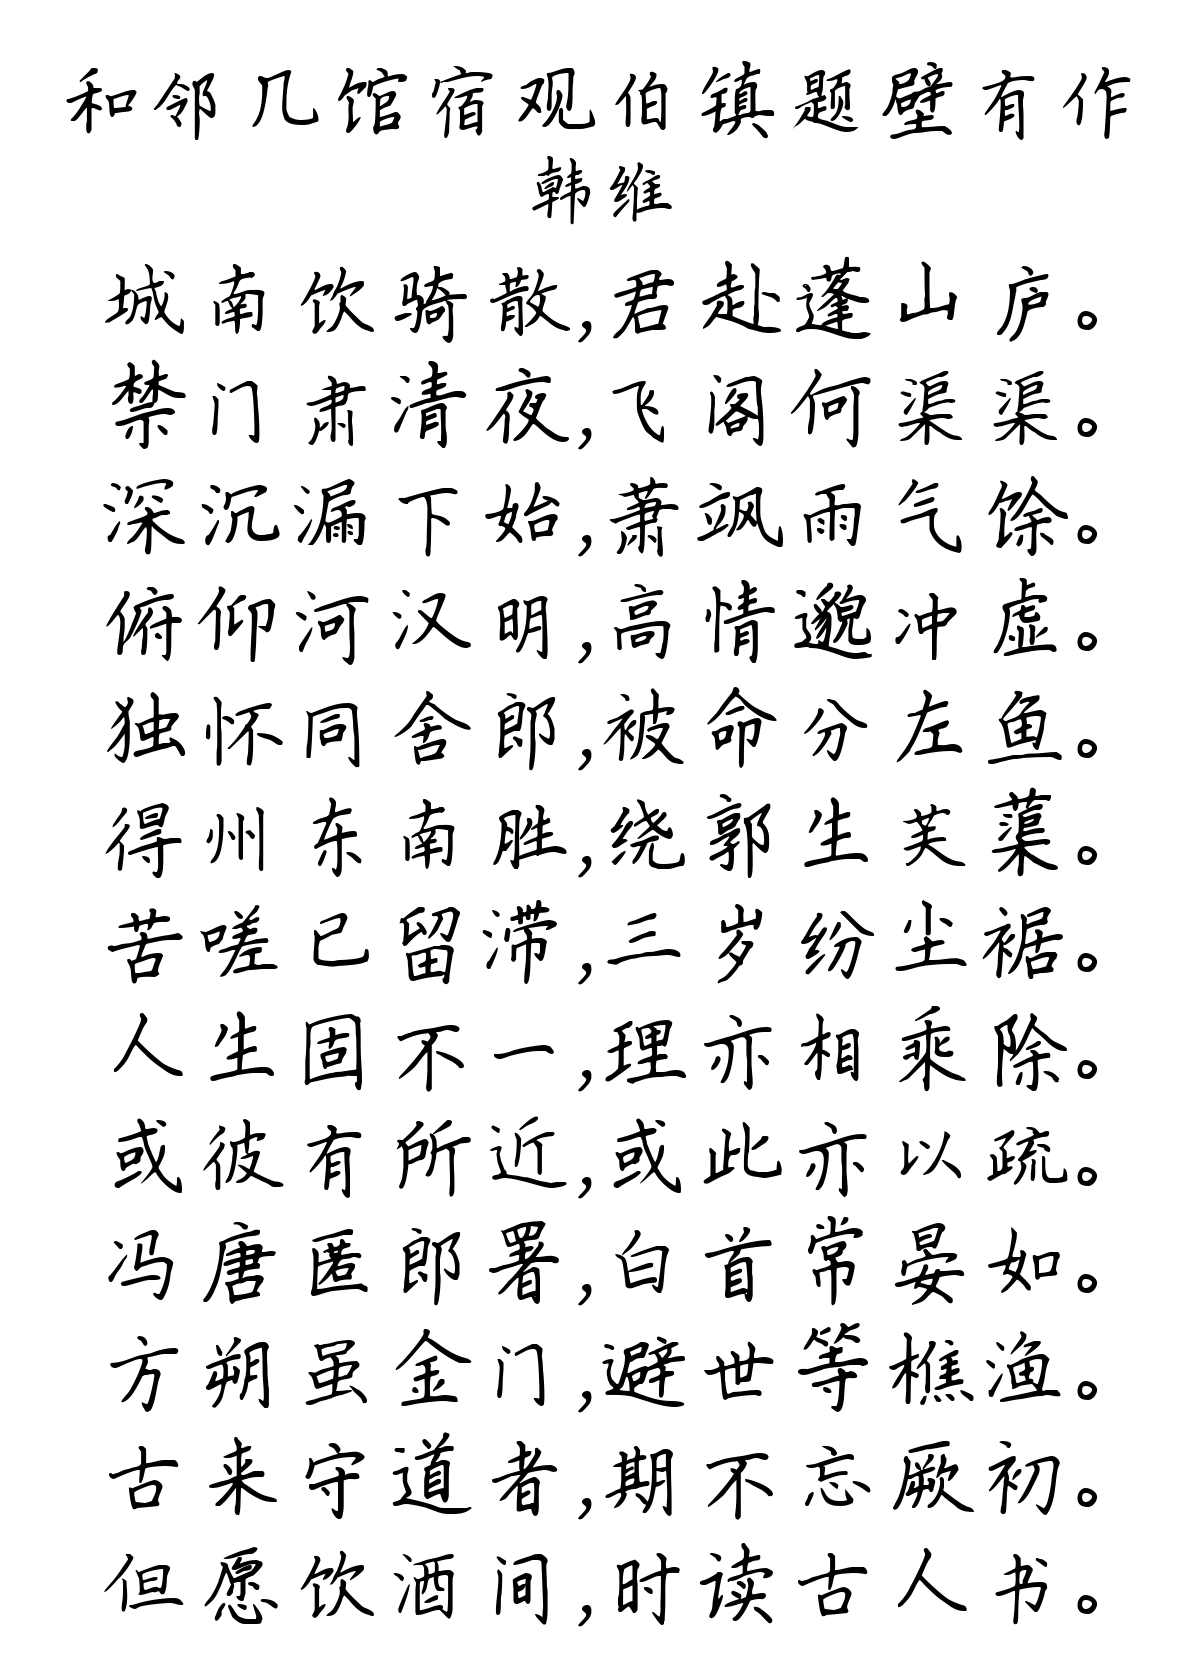 和邻几馆宿观伯镇题壁有作
韩维
城南饮骑散,君赴蓬山庐。
禁门肃清夜,飞阁何渠渠。
深沉漏下始,萧飒雨气馀。
俯仰河汉明,高情邈冲虚。
独怀同舍郎,被命分左鱼。
得州东南胜,绕郭生芙蕖。
苦嗟已留滞,三岁纷尘裾。
人生固不一,理亦相乘除。
或彼有所近,或此亦以疏。
冯唐匿郎署,白首常晏如。
方朔虽金门,避世等樵渔。
古来守道者,期不忘厥初。
但愿饮酒间,时读古人书。